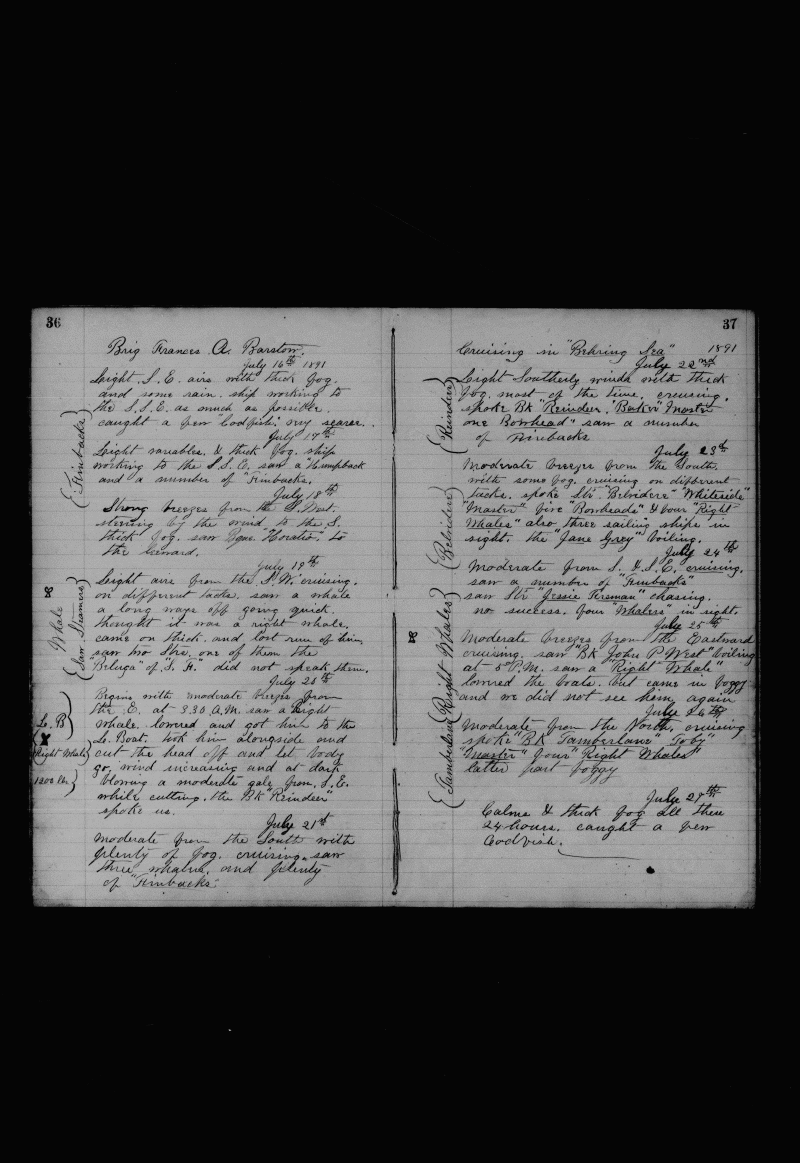 36
Brig Frances A. Barstow.
July 16th 1891
Light S.E. airs with thick fog.
and some rain. ship working to
the S.S.E. as much as possible.
caught a few "Codfish."
July 17th
Light variables. & thick fog. ship
working to the S.S.E. saw a "Humpback
and a number of "Finbacks.
(Finbacks)
July 18th
Strong breezes from the S. West.
steering by the wind. to the S.
thick fog. saw "Horatio" to
the leeward.
July 19th
Light airs from the S.W. cruising.
on different tacks. saw a whale
a long ways off going quick.
thought it was a right whale.
came on thick. and lost run of him.
saw two Strs. one of them the
"Beluga" of "S. F." did not speak them.
Whale
(Saw Steamers)
July 20th
Begins with moderate breezes from
the E. at 3.30 A.M. saw a Right
whale. lowered and got him to the
La. Boat. took him alongside and
cut the head off and let body
go. wind increasing and at dark
blowing a moderate gale from S.E.
while cutting. the BK "Reindeer"
spoke us.
La. B
Right Whale
1200 lbs
July 21st
Moderate from the South with
plenty of fog. cruising. saw
three whalers. and plenty
of "Finbacks".
37
Cruising in "Behring Sea" 1891
July 22nd
Light Southerly winds with thick
fog. most of the time. cruising.
spoke BK "Reindeer. "Baker" Master
one Bowhead" saw a number
of Finbacks
(Reindeer)
July 23d
Moderate breezes from the South.
with some fog. cruising on different
tacks. spoke Str "Belvidere" "Whiteside"
"Master" five "Bowheads" & four "Right
Whales" also three sailing ships in
sight. the "Jane Grey" boiling.
(Belvidere)
July 24th
Moderate from S. & S.E. cruising.
saw a number of "Finbacks"
saw Str "Jessie Freeman" chasing.
no success. four "Whalers" in sight.
July 25th
Moderate breezes from the Eastward
cruising. saw "BK John P West" boiling
at 5 P.M. saw a "Right Whale"
lowered the boats. but came in foggy
and we did not see him again
(Right Whales)
July 26th
Moderate from the North, cruising
spoke "BK Tamberlane" "Toby"
"Master" four "Right Whales"
latter part foggy
(Tamberlane)
July 27th
Calms & thick fog all these
24 hours. caught a few
Codfish.